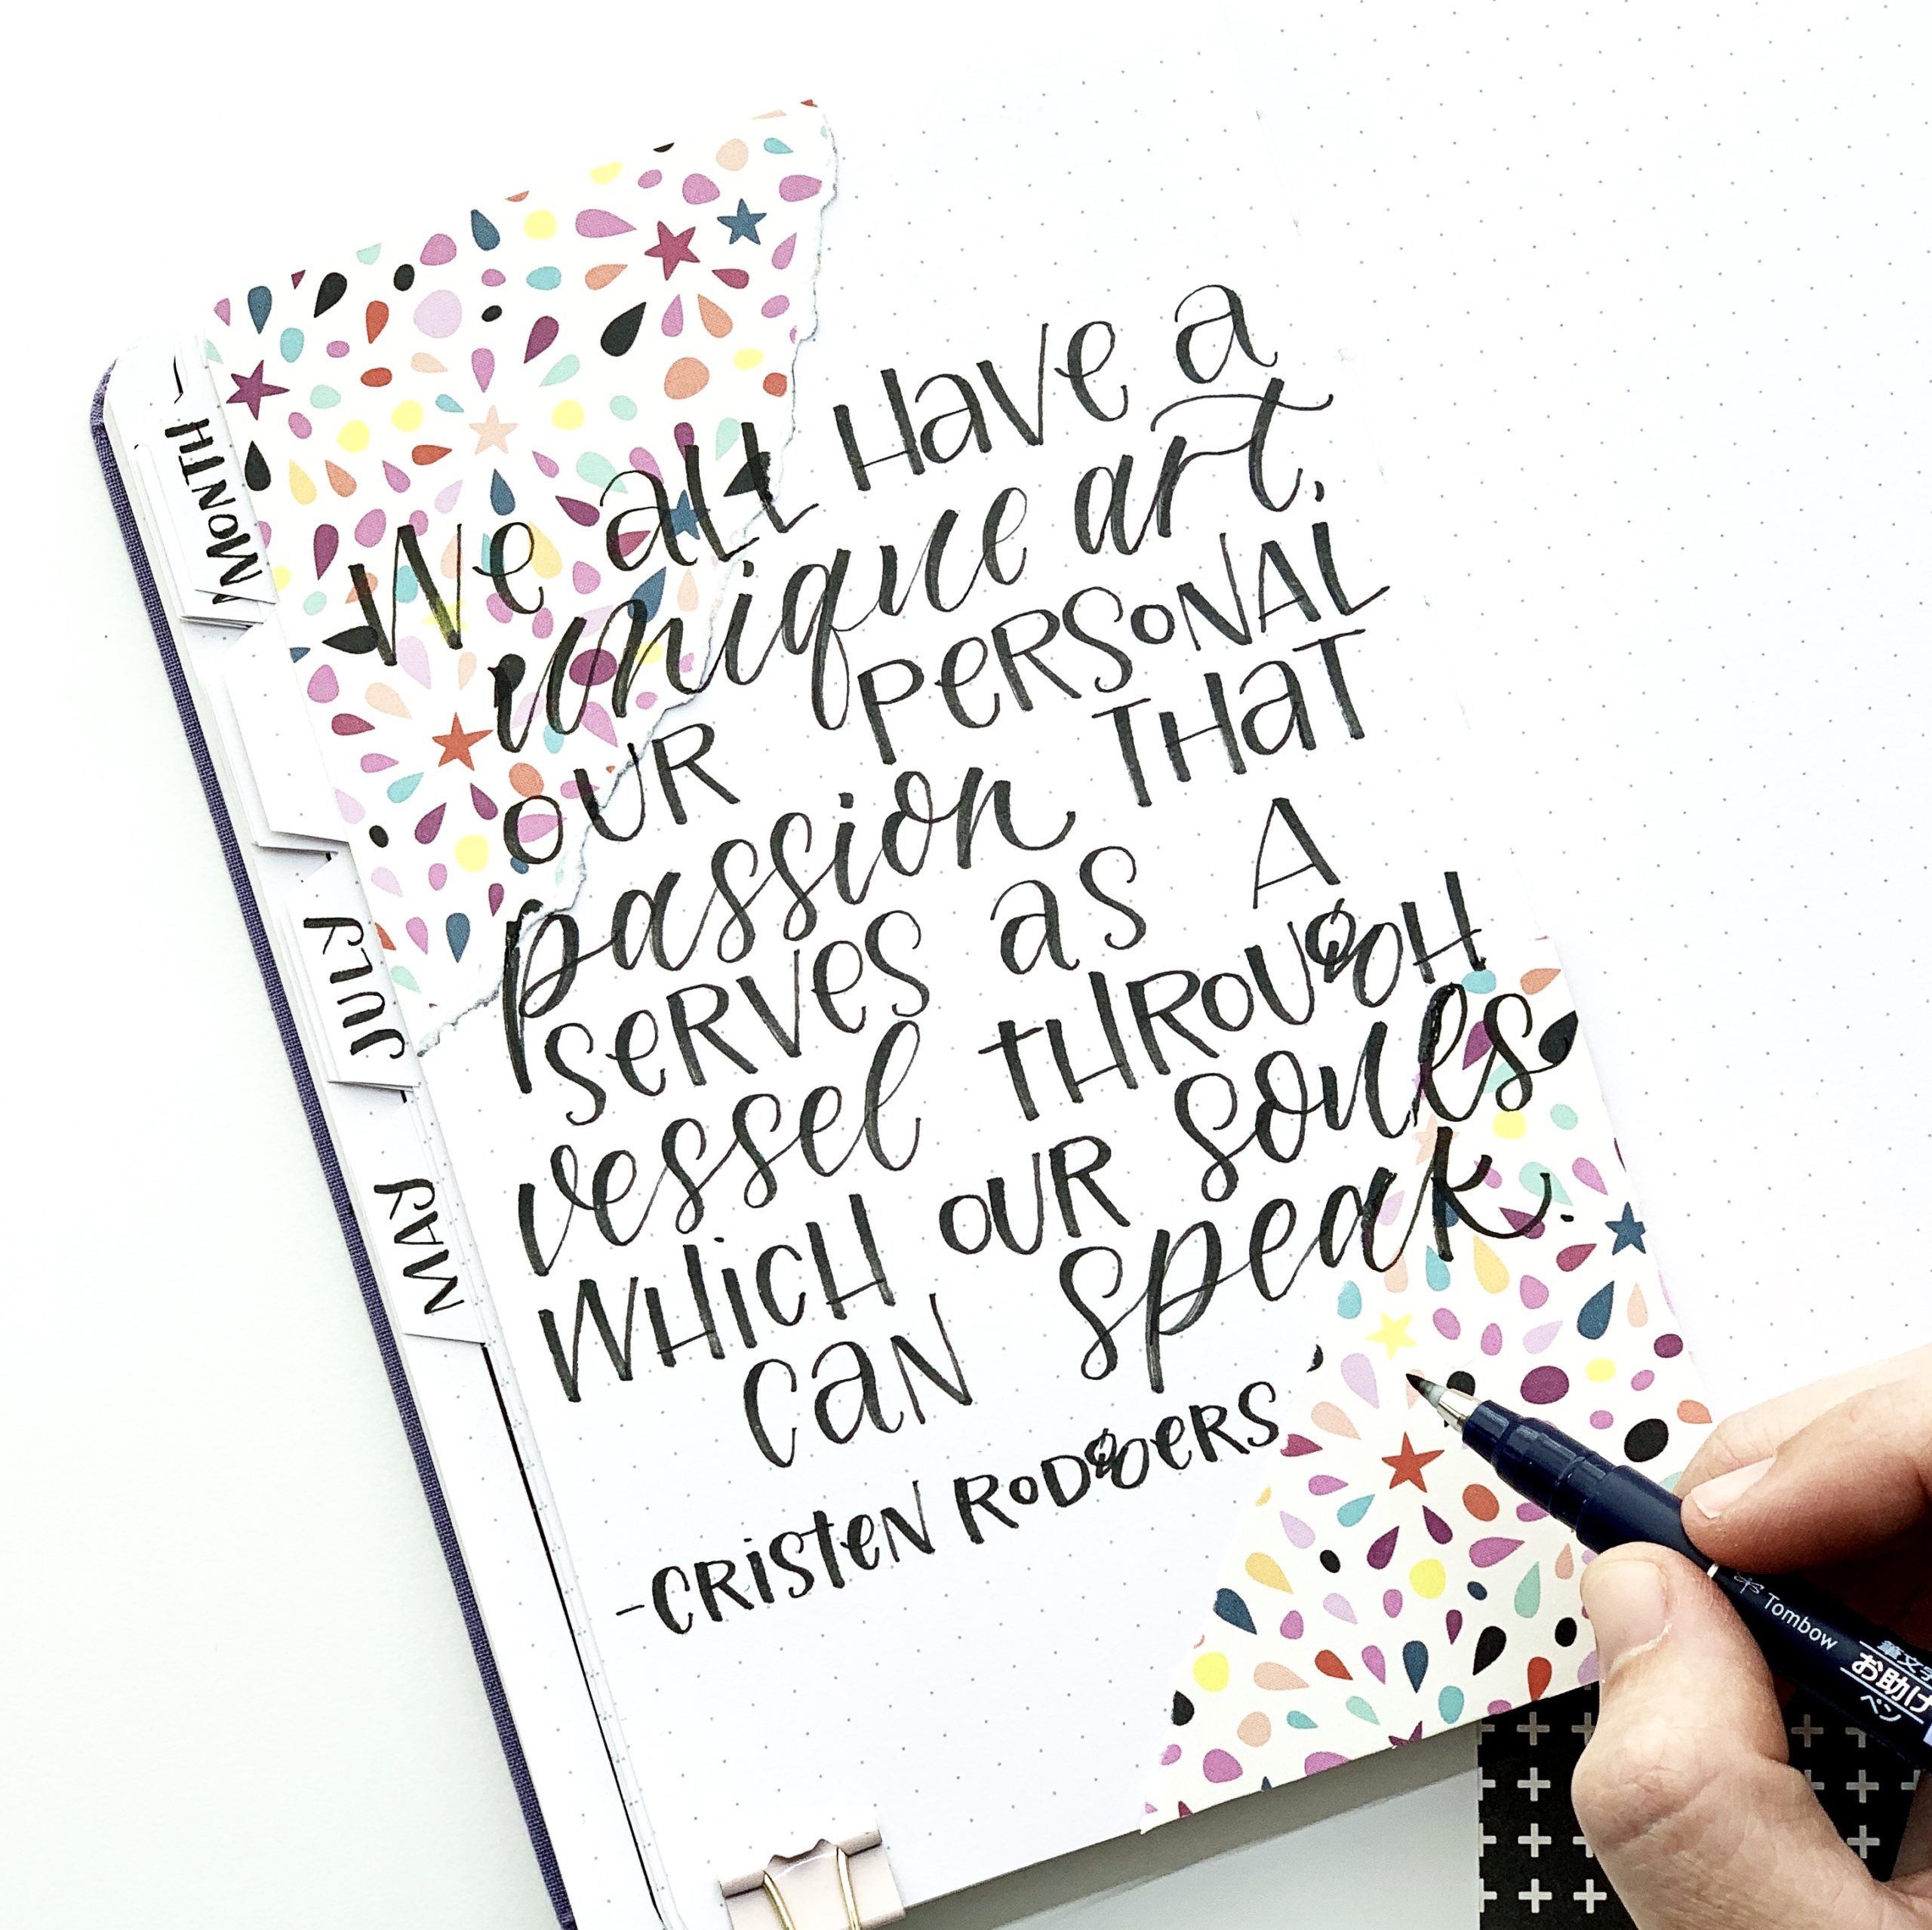 We all Have a
unique art.
OUR PERSONAL
passion THAT
SERVES AS A
vessel THROUGH
WHICH OUR soules
CAN speak.
-CRISTEN RODGERS
MONTH
JULY
MAY
Tombow
筆文字
お助け
ペン